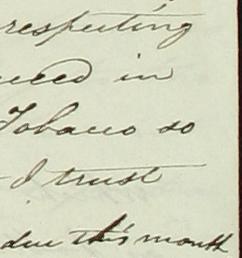 respecting
in
Tobacco so
I trust
due this month